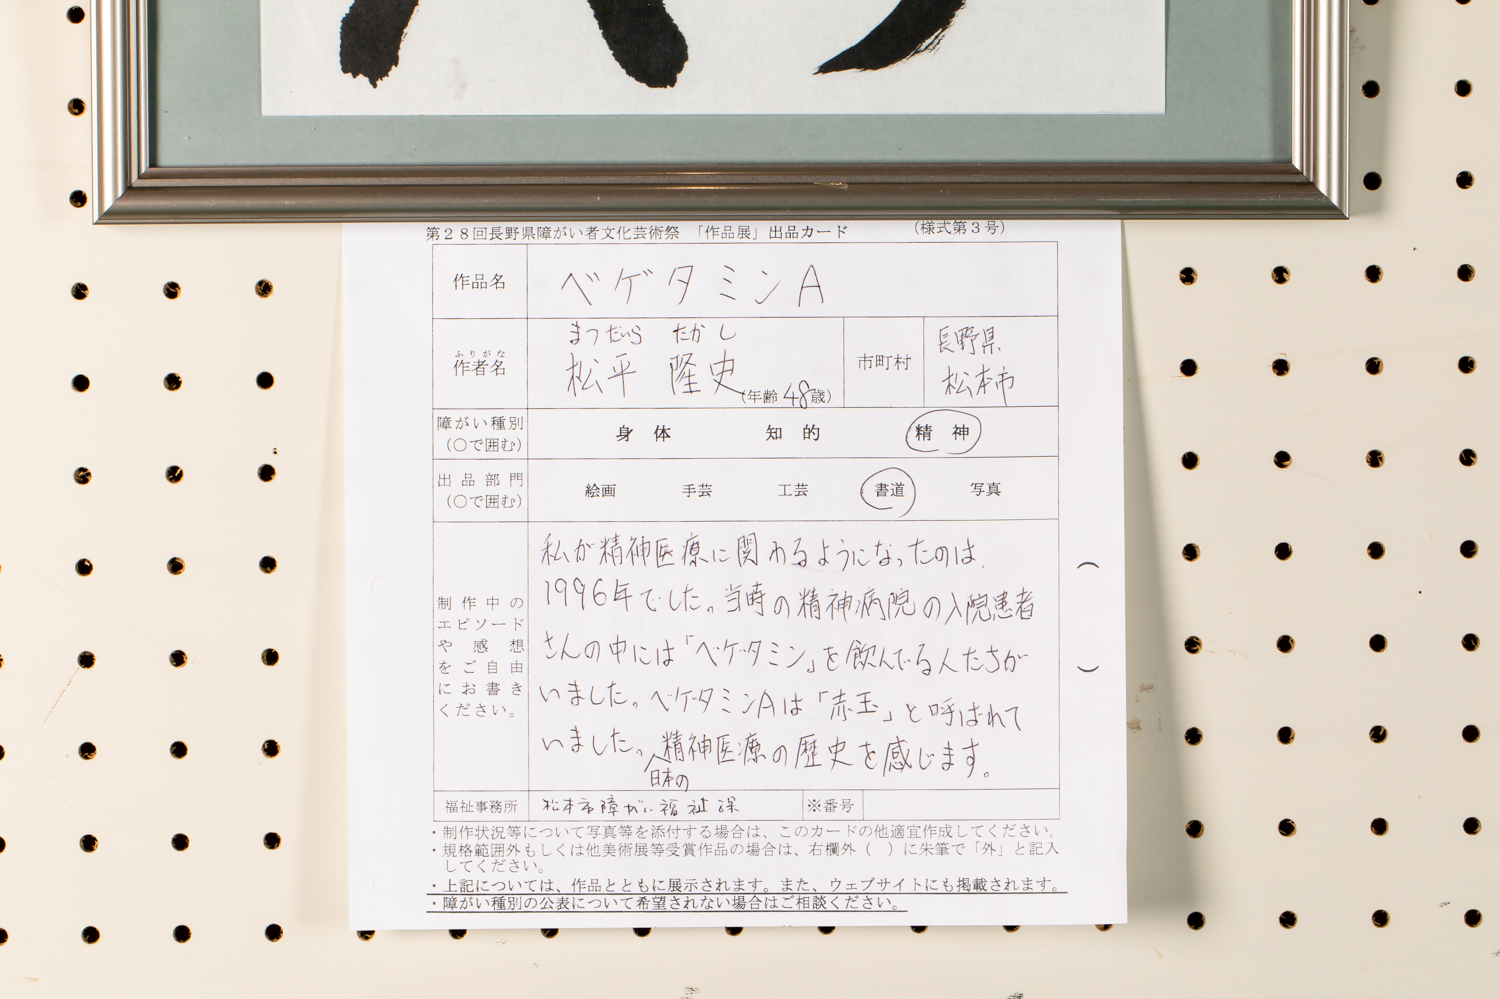 第28回長野県障がい者文化芸術祭 「作品展」出品カード (様式第3号)
作品名 ベゲタミンA
まつだいら たかし
ふりがな
作者名 松平 隆史 (年齢48歳) 市町村 長野県 松本市
障がい種別 (○で囲む) 身体 知的 精神
出品部門 (○で囲む) 絵画 手芸 工芸 書道 写真
制作中の
エピソード
や感想
をご自由
にお書き
ください。
私が精神医療に関わるようになったのは、
1996年でした。当時の精神病院の入院患者
さんの中には「ベゲタミン」を飲んでる人たちが
いました。ベゲタミンAは「赤玉」と呼ばれて
いました。日本の精神医療の歴史を感じます。
福祉事務所 松本市障がい福祉課 ※番号
・制作状況等について写真等を添付する場合は、このカードの他適宜作成してください。
・規格範囲外もしくは他美術展等受賞作品の場合は、右欄外( )に朱筆で「外」と記入
してください。
・上記については、作品とともに展示されます。また、ウェブサイトにも掲載されます。
・障がい種別の公表について希望されない場合はご相談ください。